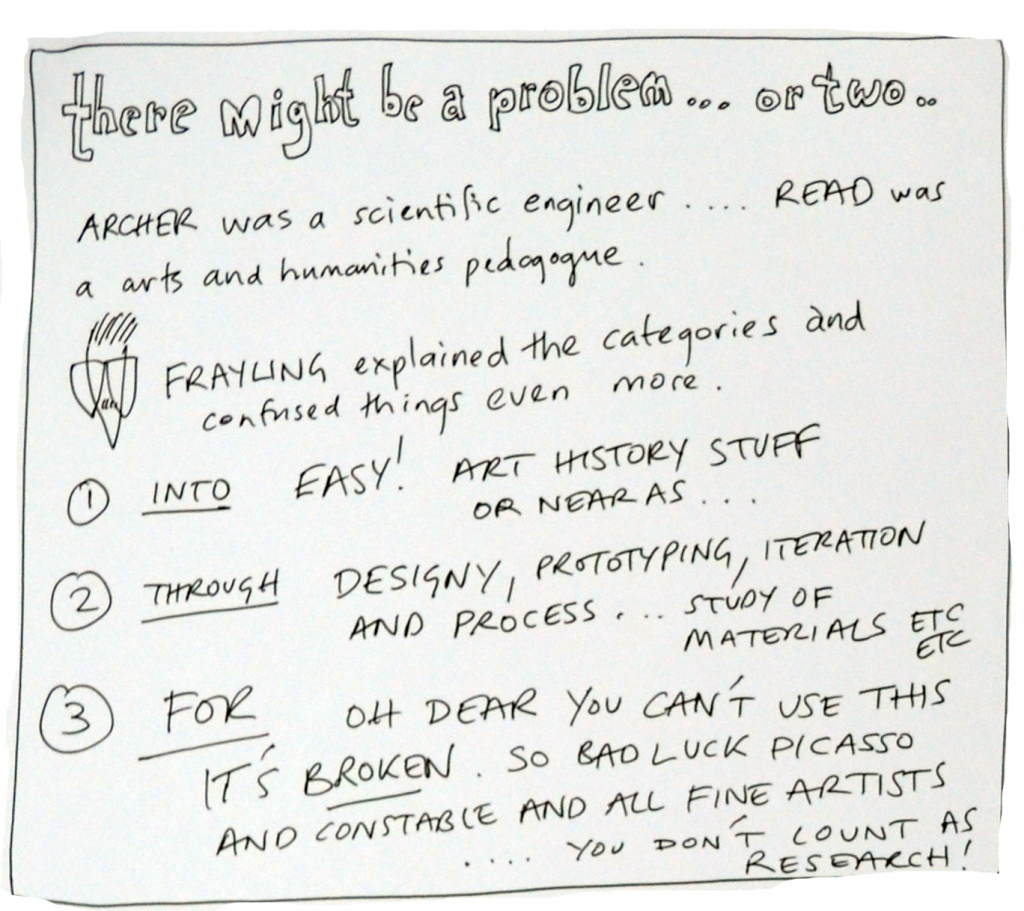 there might be a problem... or two..
ARCHER was a scientific engineer .... READ was
a arts and humanities pedagogue.
FRAYLING explained the categories and
confused things even more.
① INTO EASY! ART HISTORY STUFF
OR NEAR AS...
② THROUGH DESIGNY, PROTOTYPING, ITERATION
AND PROCESS... STUDY OF
MATERIALS ETC
ETC
③ FOR OH DEAR YOU CAN'T USE THIS
IT'S BROKEN. SO BAD LUCK PICASSO
AND CONSTABLE AND ALL FINE ARTISTS
.... YOU DON'T COUNT AS
RESEARCH!